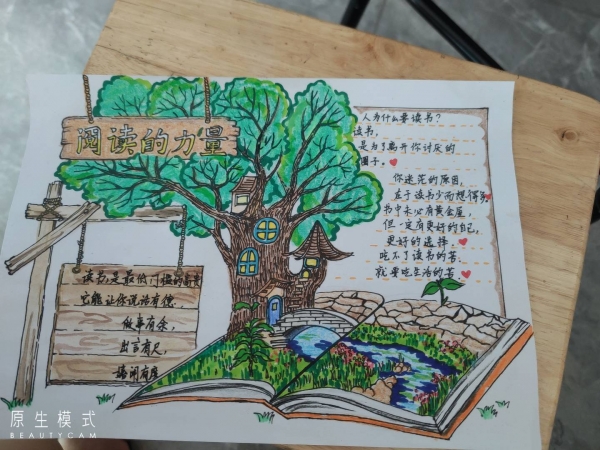 阅读的力量
人为什么要读书？
读书，
是为了离开你讨厌的
圈子。
你迷茫的原因，
在于读书少而想得多
书中未必有黄金屋，
但一定有更好的自己，
更好的选择。
吃不了读书的苦，
就要吃生活的苦。
读书，是最低门槛的高贵
它能让你说话有德，
做事有余，
出言有尺，
嬉闹有度
原生模式
BEAUTYCAM